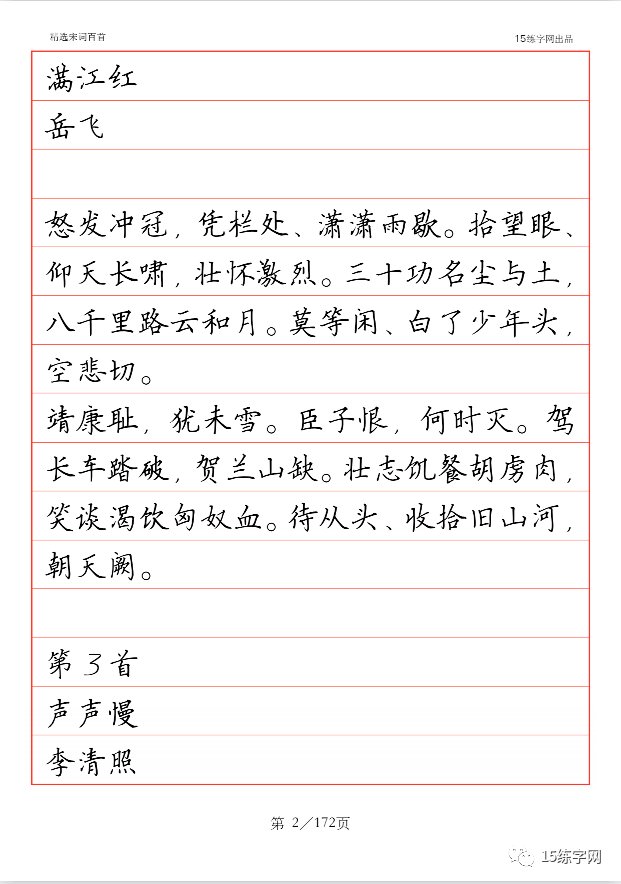 精选宋词百首
15练字网出品
满江红
岳飞
怒发冲冠，凭栏处、潇潇雨歇。抬望眼、
仰天长啸，壮怀激烈。三十功名尘与土，
八千里路云和月。莫等闲、白了少年头，
空悲切。
靖康耻，犹未雪。臣子恨，何时灭。驾
长车踏破，贺兰山缺。壮志饥餐胡虏肉，
笑谈渴饮匈奴血。待从头、收拾旧山河，
朝天阙。
第3首
声声慢
李清照
第 2／172页
15练字网